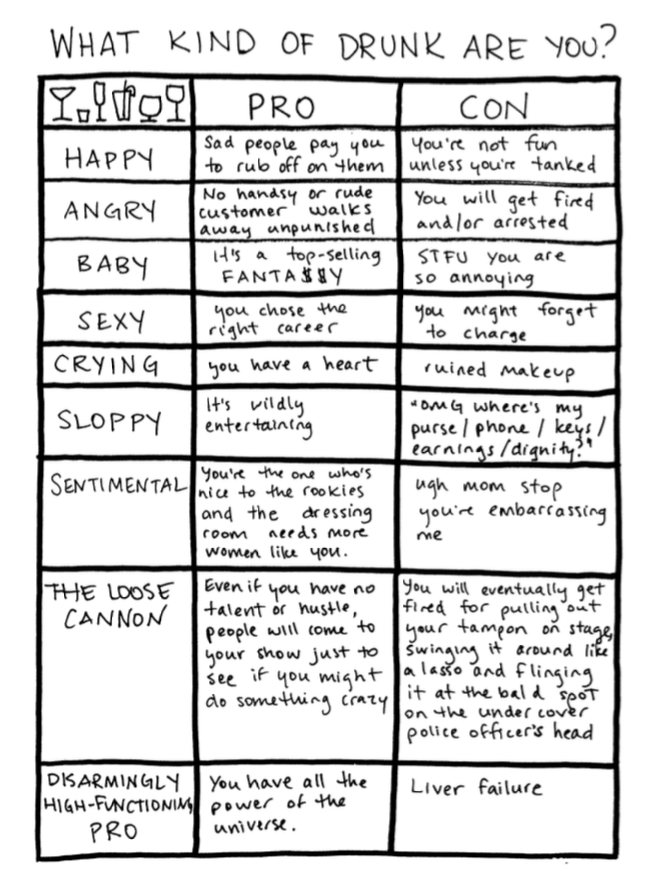 WHAT KIND OF DRUNK ARE YOU?
PRO
CON
HAPPY
Sad people pay you
to rub off on them
you're not fun
unless you're tanked
ANGRY
No handsy or rude
customer walks
away unpunished
You will get fired
and/or arrested
BABY
it's a top-selling
FANTA$$Y
STFU you are
so annoying
SEXY
you chose the
right career
you might forget
to charge
CRYING
you have a heart
ruined makeup
SLOPPY
It's wildly
entertaining
"OMG where's my
purse/phone/keys/
earnings/dignity?"
SENTIMENTAL
You're the one who's
nice to the rookies
and the dressing
room needs more
women like you.
ugh mom stop
you're embarrassing
me
THE LOOSE
CANNON
Even if you have no
talent or hustle,
people will come to
your show just to
see if you might
do something crazy
You will eventually get
fired for pulling out
your tampon on stage,
swinging it around like
a lasso and flinging
it at the bald spot
on the under cover
police officer's head
DISARMINGLY
HIGH-FUNCTIONING
PRO
You have all the
power of the
universe.
Liver failure